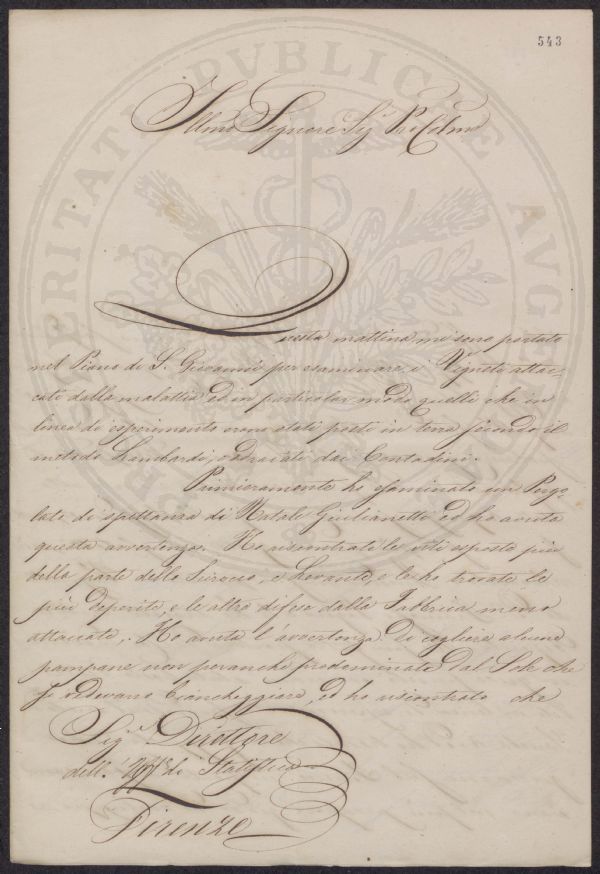 543
Illmo Signore Sig.
Questa mattina mi sono portato
nel Piano di S. Giovanni per esaminare i Vigneti attac-
cati dalla malattia ed in particolar modo quelli che in
linea di esperimento erano stati posti in terra secondo il
metodo Lambardi, e dai Contadini.
Primieramente ho esaminato un Pergo-
lato di spettanza di Natale Giulianetti ed ho avuta
questa avvertenza. Ho riscontrate le viti esposte più
dalla parte dello Sirocco, e Levante, e le ho trovate le
più deperite, e le altre difese dalla Fabbrica meno
attaccate. Ho avuta l'avvertenza di cogliere alcune
pampane non peranche predominate dal Sole che
si vedevano biancheggiare, ed ho riscontrato che
Sig.r Direttore
dell' Uff.o di Statistica
Firenze
PROSPERITATI PVBLICAE AVGENDAE